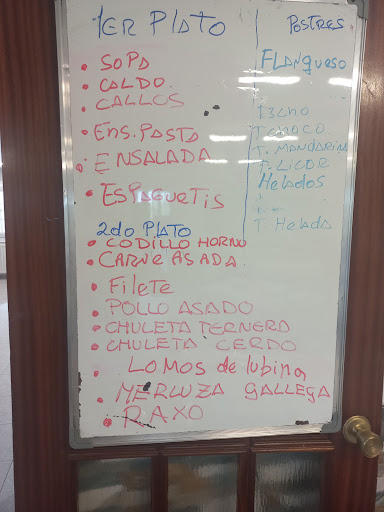 1ER PLATO
• SOPA
• CALDO.
• CALLOS
• Ens. PASTA
• ENSALADA
• ESPAGUETIS
2do PLATO
• CODILLO HORNO
• CARNE ASADA
• Filete
• POLLO ASADO
• CHULETA TERNERA
• CHULETA CERDO
• LOMOS de lubina
• MERLUZA GALLEGA
• RAXO
POSTRES
FLANqueso
T. CHOCO
T. MANDARINA
LICOR
Helados
T. Helada